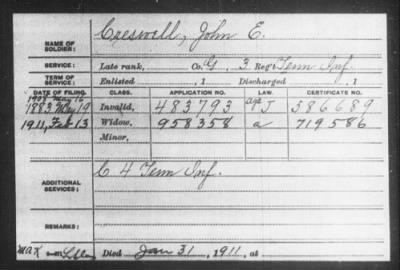 NAME OF SOLDIER: Creswell, John E.
SERVICE: Late rank, Co. G, 3 Reg't Tenn Inf.
TERM OF SERVICE: Enlisted , 1 Discharged , 1
DATE OF FILING. CLASS. APPLICATION NO. LAW. CERTIFICATE NO.
1908 May 16
1883, May 19 Invalid, 483793 age J 386689
1911, Feb 13 Widow, 958358 a 719586
Minor,
ADDITIONAL SERVICES: C 4 Tenn Inf.
REMARKS:
Died Jan 31, 1911, at